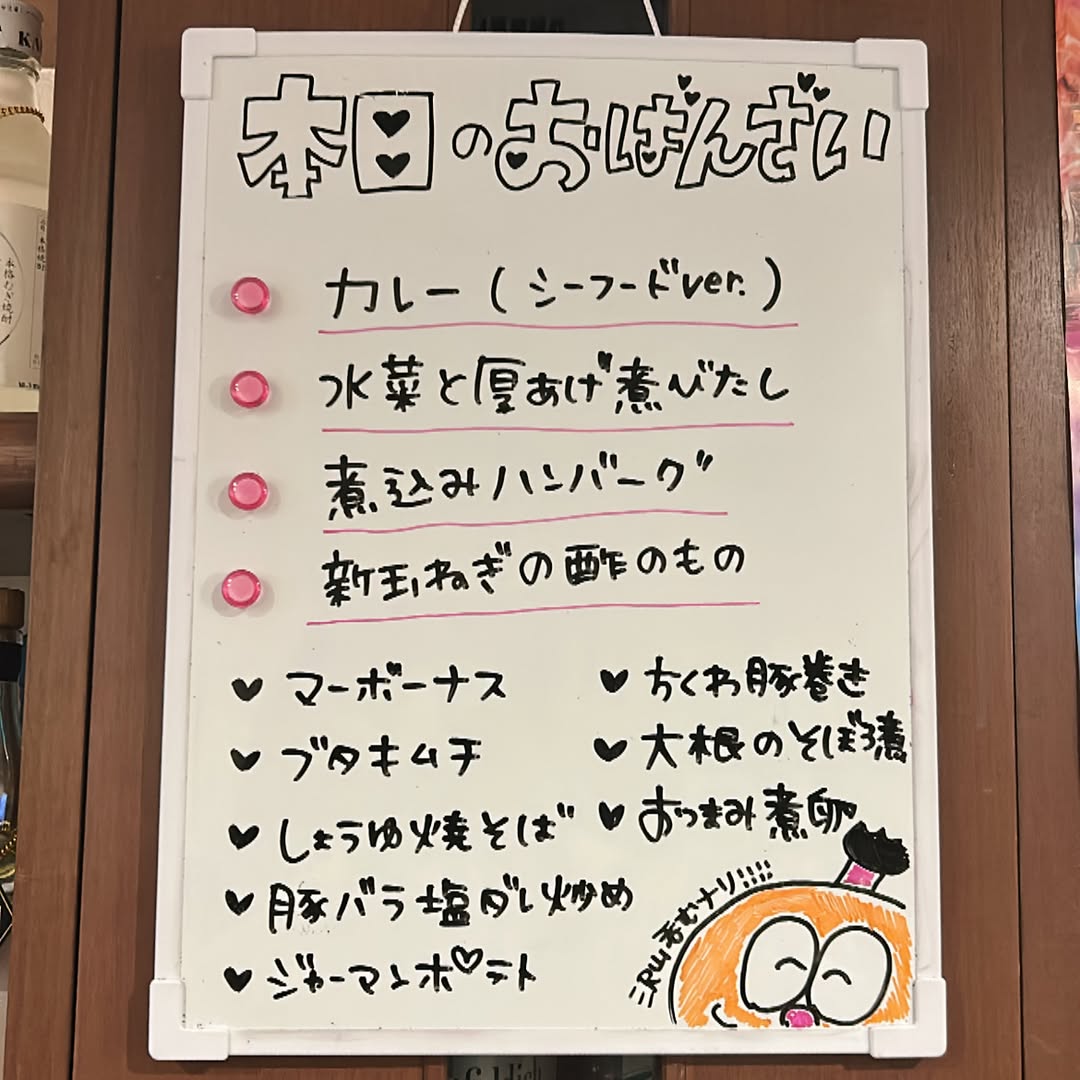 本日のおばんざい
カレー(シーフードver.)
水菜と厚あげ煮びたし
煮込みハンバーグ
新玉ねぎの酢のもの
♥ マーボーナス
♥ ブタキムチ
♥ しょうゆ焼そば
♥ 豚バラ塩ダレ炒め
♥ ジャーマンポテト
♥ ちくわ豚巻き
♥ 大根のそぼろ煮
♥ おつまみ煮卵
呑むナリ!!!!
本格むぎ焼酎